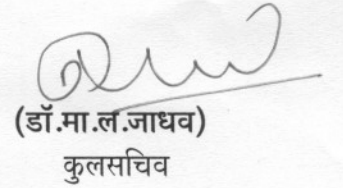 (डॉ.मा.ल.जाधव)
कुलसचिव